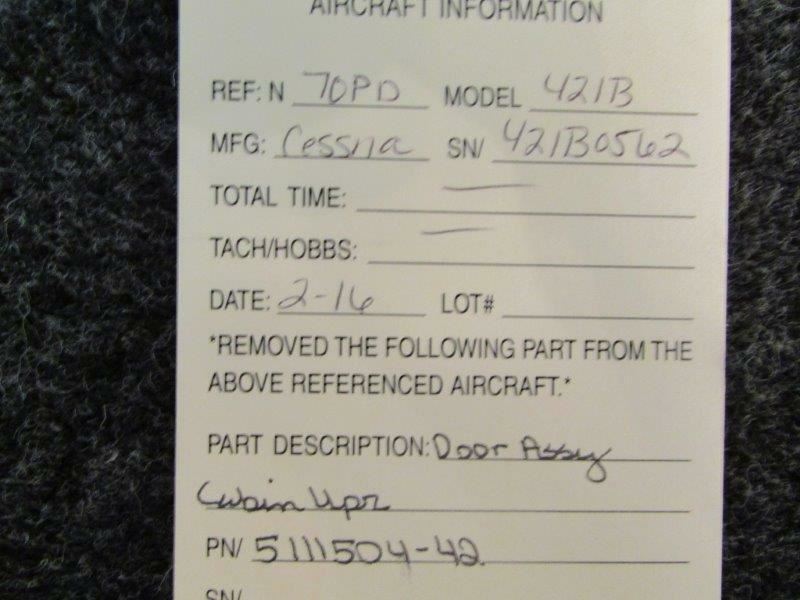 AIRCRAFT INFORMATION
REF: N 70PD MODEL 421B
MFG: Cessna SN/ 421B0562
TOTAL TIME: —
TACH/HOBBS: —
DATE: 2-16 LOT#
*REMOVED THE FOLLOWING PART FROM THE
ABOVE REFERENCED AIRCRAFT.*
PART DESCRIPTION: Door Assy
Cabin Upr
PN/ 5111504-42
SN/